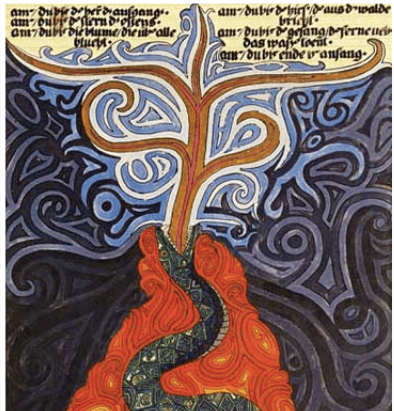 am / du bist d' her d' anfangs.
am / du bist d' stern d' ostens.
am / du bist die blume / die üb' alle
blueht.
am / du bist d' hirs / d' aus d' walde
bricht.
am / du bist d' gesang / d' ferne üb'
das wass' toent.
am / du bist ende u' anfang.